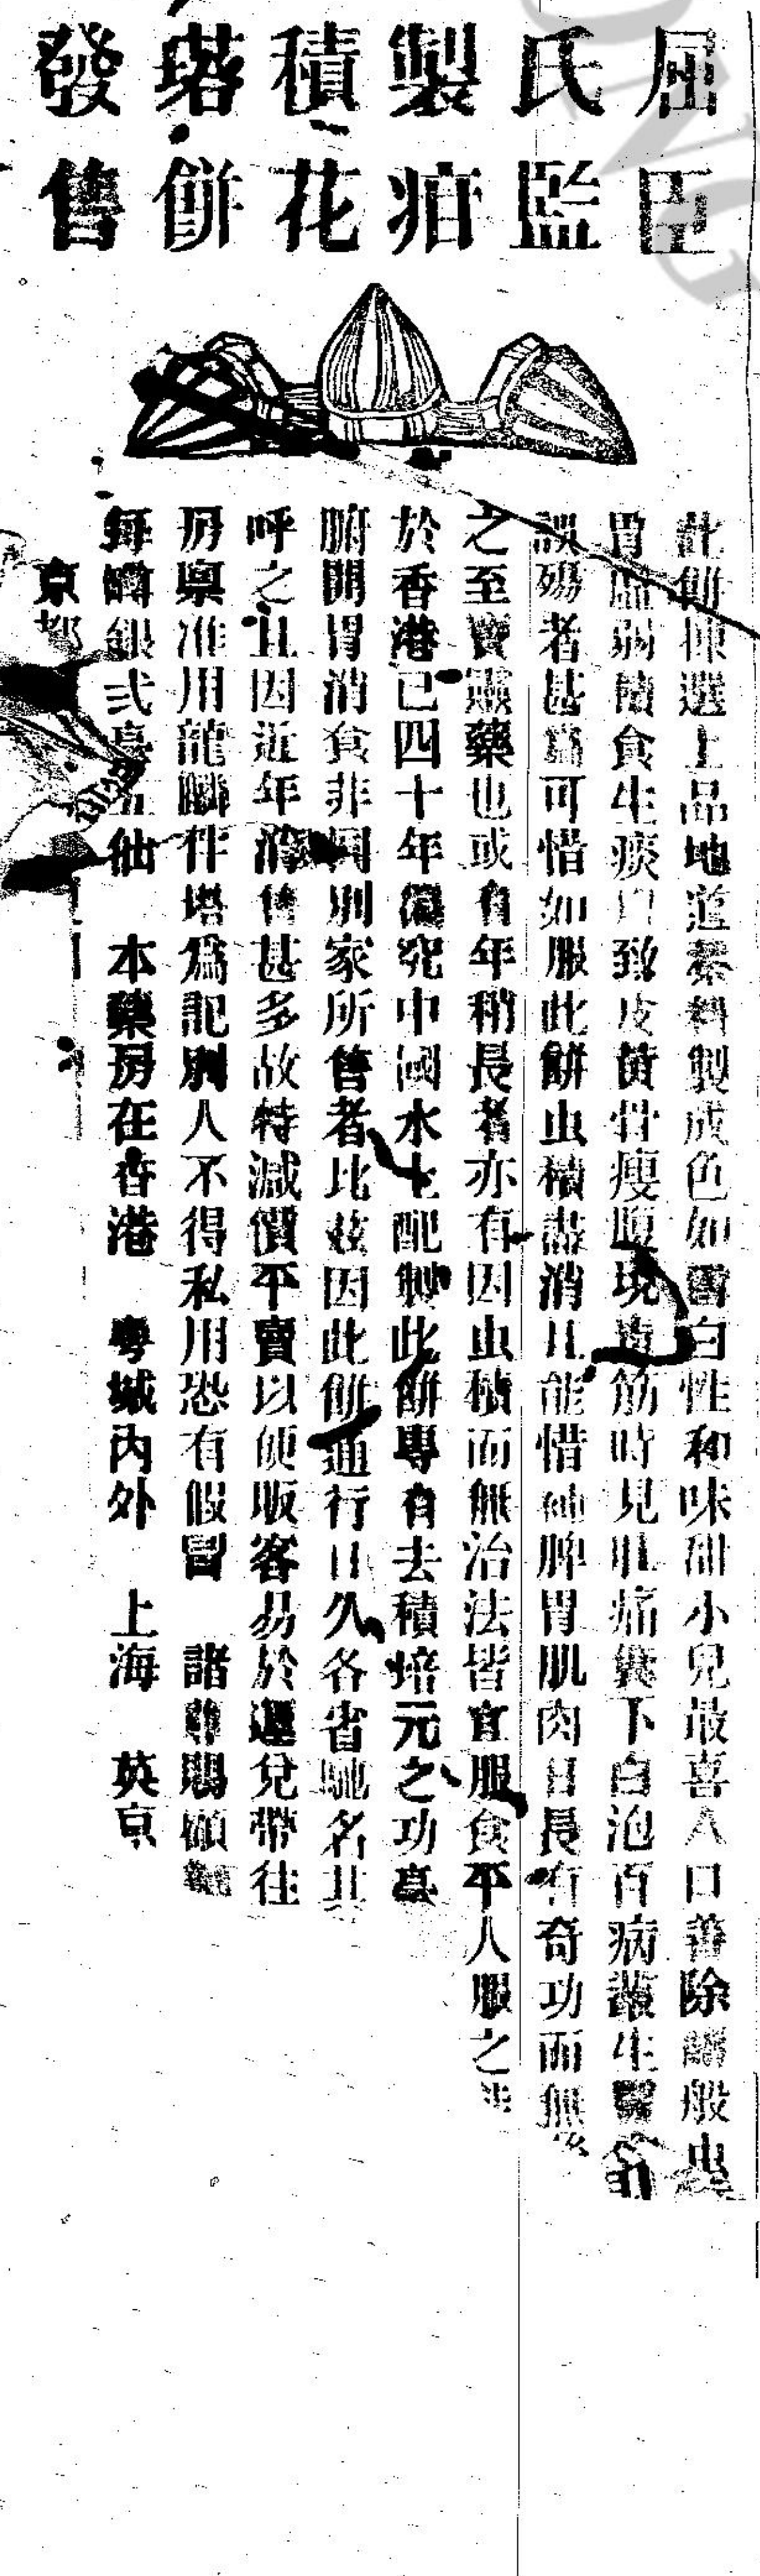 屈臣
氏監
製疳
積花
塔餅
發售
此餅揀選上品地道藥料製成色如雪白性和味甜小兒最喜入口善除諸般虫
胃虛弱積食生痰以致皮黃骨瘦腹現青筋時見肚痛糞下白泡百病叢生醫
誤殤者甚為可惜如服此餅虫積盡消且能惜補脾胃肌肉日長有奇功而無
之至寶靈藥也或有年稍長者亦有因虫積而無治法皆宜服食平人服之
於香港已四十年深究中國水土配製此餅專有去積培元之功
腑開胃消食非同別家所售者比玆因此餅通行日久各省馳名其
呼之且因近年消售甚多故特減價平賣以便販客易於運兌帶往
房稟准用龍麟伴塔為記別人不得私用恐有假冒 諸尊賜顧
每罇銀弍毫五仙 本藥房在香港 粵城內外 上海 英京
京都